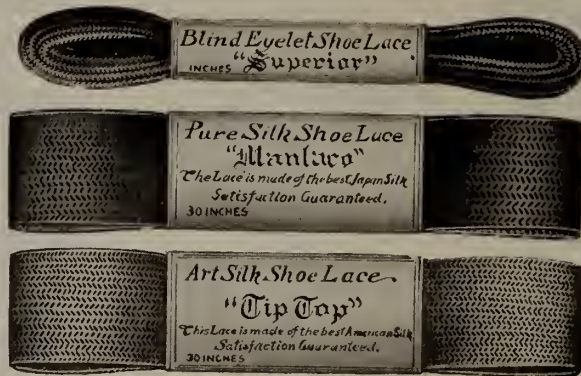 Blind Eyelet Shoe Lace
INCHES "Superior"
Pure Silk Shoe Lace
"Manlaco"
The Lace is made of the best Japan Silk
Satisfaction Guaranteed.
30 INCHES
Art Silk Shoe Lace
"Tip Top"
This Lace is made of the best American Silk
Satisfaction Guaranteed.
30 INCHES